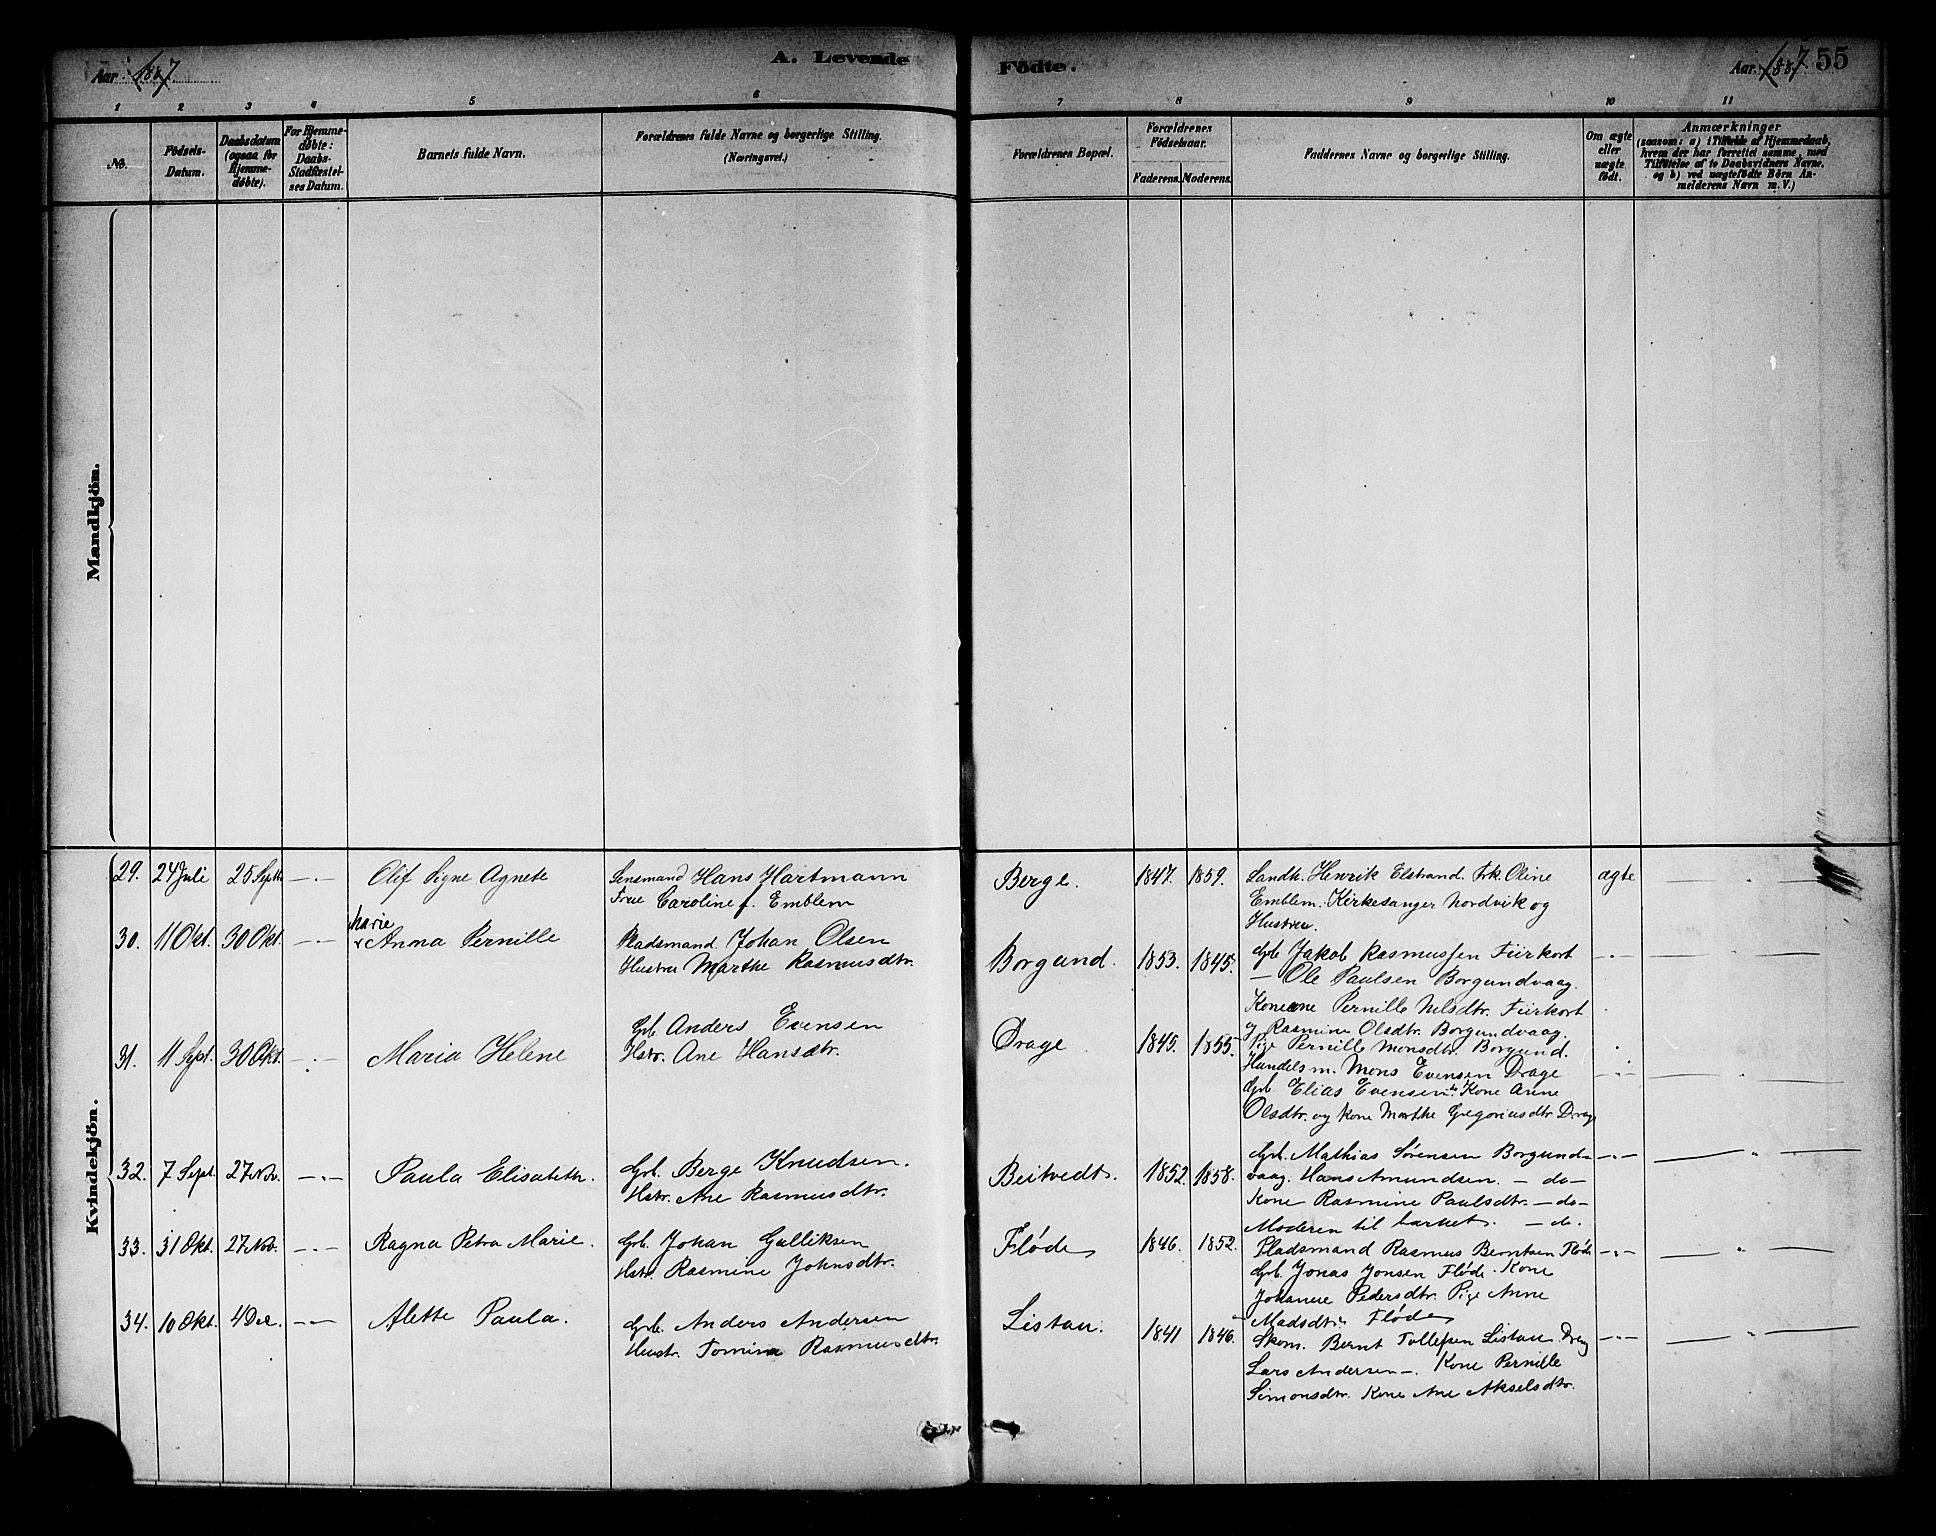 Aar: 1887
A. Levende
Födte.
Aar: 1887
55
1 2 3 4 5 6 7 8 9 10 11
No.
Födsels-
Datum.
Daabsdatum
(ogsaa for
Hjemme-
døbte).
For Hjemme-
døbte:
Daabs-
Stadfæstel-
ses Datum.
Barnets fulde Navn.
Forældrenes fulde Navne og borgerlige Stilling.
(Næringsvei.)
Forældrenes Bopæl.
Forældrenes
Födselsaar.
Faderens. Moderens.
Faddernes Navne og borgerlige Stilling.
Om ægte
eller
uægte
födt.
Anmærkninger
(saasom: a) i Tilfælde af Hjemmedaab,
hvem der har forrettet samme, med
Tilföielse af to Daabsvidners Navne,
og b) ved uægtefödte Börn An-
melderens Navn m. V.)
Mandkjön.
Kvindekjön.
29. 24 Juli 25 Septb. —"— Olif Signe Agnete
Lensmand Hans Hartmann
Frue Caroline f. Emblem
Berge. 1847. 1859.
Landh. Henrik Elstrand. Frk. Oline
Emblem. Kirkesanger Nordvik og
Hustru.
ægte
30. 11 Okt. 30 Okt. —"— Marie
Anna Pernille
Pladsmand Johan Olsen
Hustru Marthe Rasmusdtr.
Borgund. 1853. 1845.
Gb. Jakob Rasmussen Fürkort
— Ole Paulsen Borgundvaag.
Konerne Pernille Nilsdtr. Fürkort
og Rasmine Olsdtr. Borgundvaag.
Pige Pernille Monsdtr. Borgund.
—"—
31. 11 Sept. 30 Okt. —"— Maria Helene
Gb. Anders Evensen
Hstr. Ane Hansdtr.
Drage 1845. 1855.
Handelsm. Mons Evensen Drage
Gb. Elias Evensen Kone Anne
Olsdtr. og Kone Marthe Gregoriusdtr Drage
—"—
32. 7 Sept. 27 Nov. —"— Paula Elisabeth.
Gb. Berge Knudsen.
Hstr. Ane Rasmusdtr.
Beitvedt. 1852. 1858.
Gb. Mathias Sørensen Borgund-
vaag. Hans Amundsen. — do —
Kone Rasmine Paulsdtr. — do —
Moderen til barnet. — do.
—"—
33. 31 Okt. 27 Nov. —"— Ragna Petra Marie.
Gb. Johan Gulliksen
Hstr. Rasmine Johnsdtr.
Fløde 1846. 1852.
Pladsmand Rasmus Berntsen Fløde
Gb. Jonas Jonsen Fløde. Kone
Johanne Pedersdtr. Pige Anne
Madsdtr. Fløde
—"—
34. 10 Okt. 4 Dec. —"— Alette Paula.
Gb. Anders Andersen
Hustr. Tomine Rasmusdtr.
Listau. 1841 1846.
Skom. Bernt Tollefsen Listau. Dreng
Lars Andersen —. Kone Pernille
Simonsdtr. Kone Ane Akselsdtr.
—"—